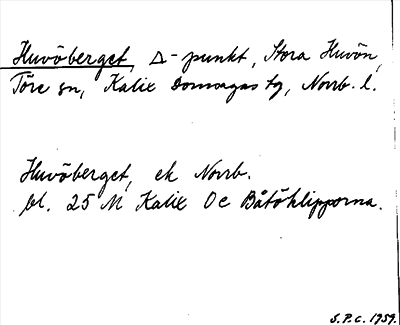 Huvöberget, Δ-punkt, Stora Huvön,
Töre sn, Kalix domsagas tg, Norrb. l.
Huvöberget, ek Norrb.
bl. 25 M Kalix Oc Båtöklipporna.
S.P.C. 1959.